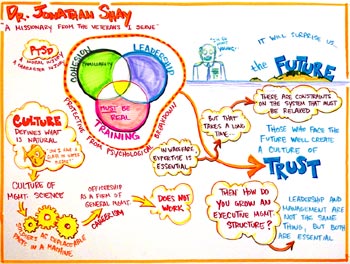 DR. JONATHAN SHAY
"A MISSIONARY FROM THE VETERAN'S I SERVE"
PTSD
MORAL INJURY
CHARACTER INJURY
COHESION
LEADERSHIP
FAMILIARITY
MUST BE
REAL
TRAINING
PROTECTIVE FROM PSYCHOLOGICAL BREAKDOWN
IT WILL SURPRISE US...
the FUTURE
THERE ARE CONSTRAINTS
ON THE SYSTEM THAT MUST
BE RELAXED
BUT THAT
TAKES A LONG
TIME...
THOSE WHO FACE THE
FUTURE WELL CREATE
A CULTURE OF
TRUST
CULTURE
DEFINES WHAT
IS NATURAL
IN WARFARE
EXPERTISE IS
ESSENTIAL
CULTURE OF
MGMT. SCIENCE
SOLDIERS AS REPLACEABLE
PARTS IN A MACHINE
OFFICERSHIP
AS A FORM OF
GENERAL MGMT.
CAREERISM
DOES NOT
WORK
THEN HOW DO
YOU GROW AN
EXECUTIVE MGMT.
STRUCTURE?
LEADERSHIP AND
MANAGEMENT ARE
NOT THE SAME
THING, BUT BOTH
ARE ESSENTIAL